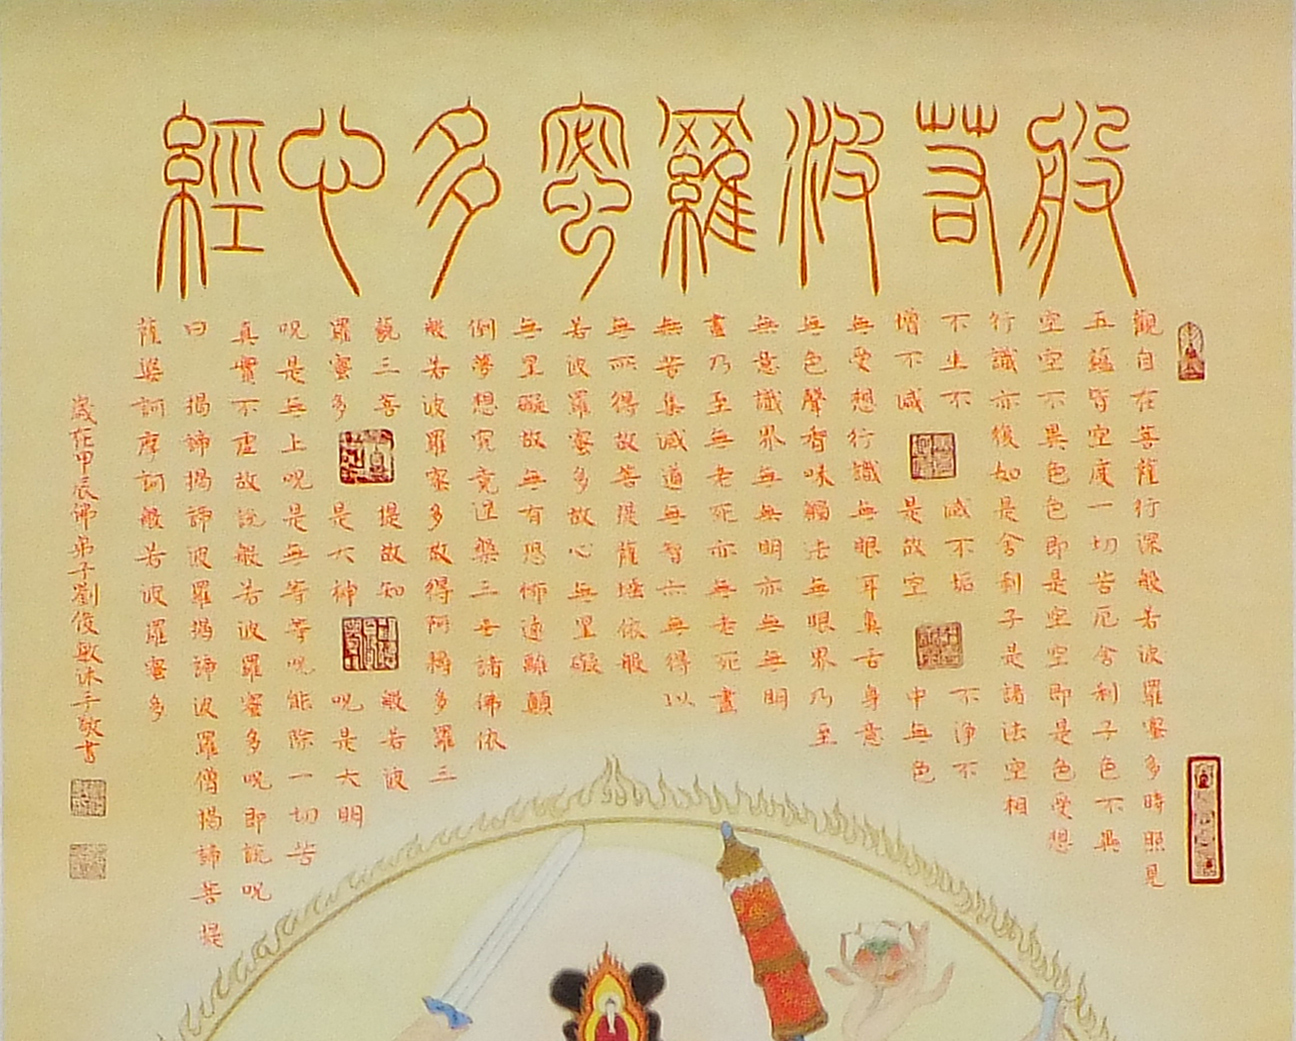 般若波羅蜜多心經
觀自在菩薩行深般若波羅蜜多時照見
五蘊皆空度一切苦厄舍利子色不異
空空不異色色即是空空即是色受想
行識亦復如是舍利子是諸法空相
不生不滅不垢不淨不
增不減是故空中無色
無受想行識無眼耳鼻舌身意
無色聲香味觸法無眼界乃至
無意識界無無明亦無無明
盡乃至無老死亦無老死盡
無苦集滅道無智亦無得以
無所得故菩提薩埵依般
若波羅蜜多故心無罣礙
無罣礙故無有恐怖遠離顛
倒夢想究竟涅槃三世諸佛依
般若波羅蜜多故得阿耨多羅三
藐三菩提故知般若波
羅蜜多是大神呪是大明
呪是無上呪是無等等呪能除一切苦
真實不虛故說般若波羅蜜多呪即說呪
曰揭諦揭諦波羅揭諦波羅僧揭諦菩提
薩婆訶摩訶般若波羅蜜多
歲在甲辰佛弟子劉俊敏沐手敬書